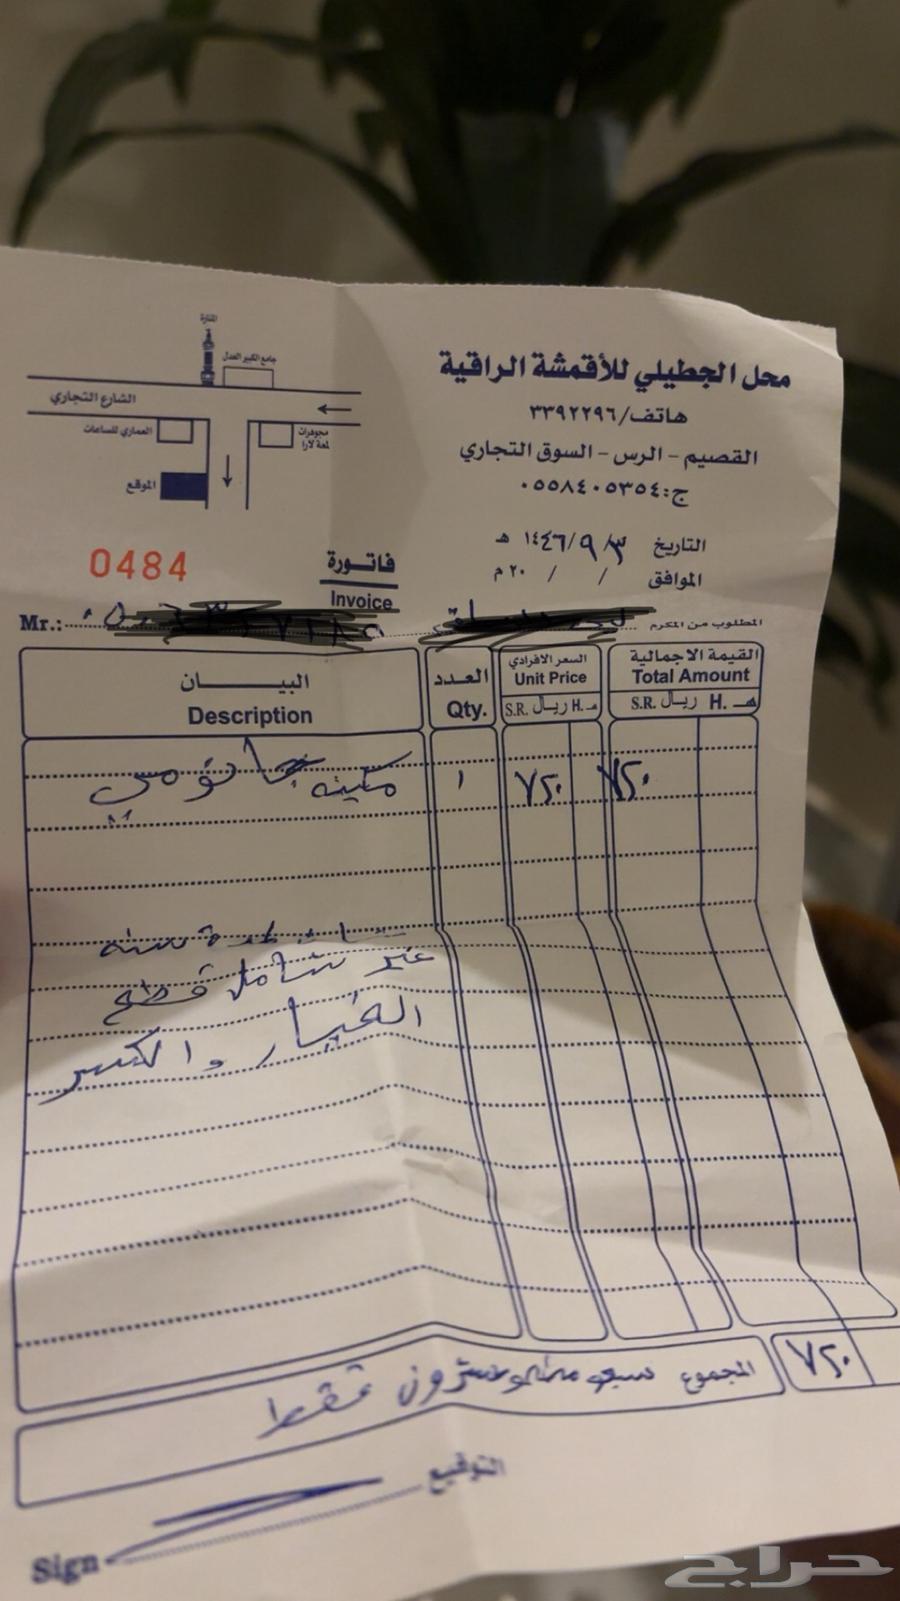 محل الجطيلي للأقمشة الراقية
هاتف/٣٣٩٢٢٩٦
القصيم - الرس - السوق التجاري
ج:٠٥٥٨٤٠٥٣٥٤
المنارة
جامع الكبير العدل
الشارع التجاري
العماري للساعات
مجوهرات
لمعة لارا
الموقع
التاريخ ٣/٩/١٤٤٦ هـ
الموافق / / ٢٠ م
0484
فاتورة
Invoice
Mr.:
المطلوب من المكرم
البيـــــان
Description
العدد
Qty.
السعر الافرادي
Unit Price
S.R. ريال H. هـ
القيمة الاجمالية
Total Amount
S.R. ريال H. هـ
مكينه جانومي ١ ٧٢٠ ٧٢٠
لمدة سنه
غير شامل قطع
الغيار والكسر
المجموع سبعمائه وعشرون فقط ٧٢٠
التوقيع
Sign
حراج